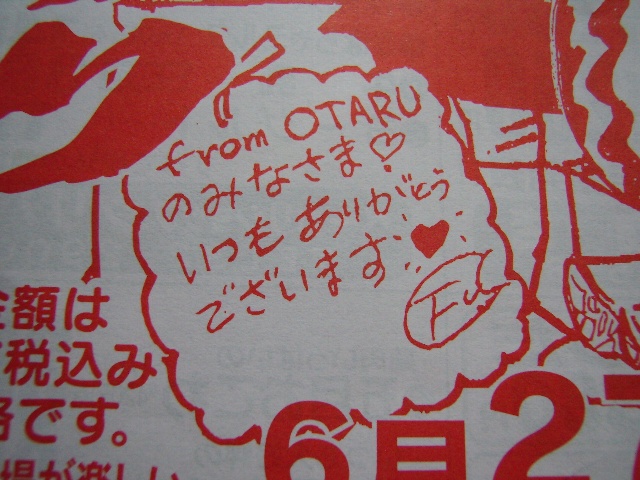 from OTARU
のみなさま♡
いつもありがとう
ございます♥
Fu
金額は
税込み
格です。
場が楽しい
6月27